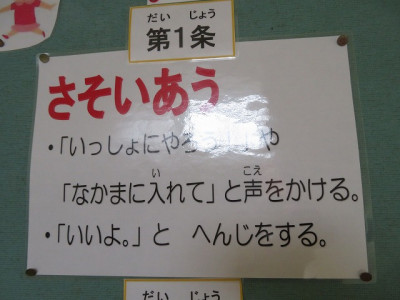 だい じょう
第1条
さそいあう
・「いっしょにやろう」や
「なかまに入れて」と声をかける。
い こえ
・「いいよ。」と へんじをする。
だい じょう